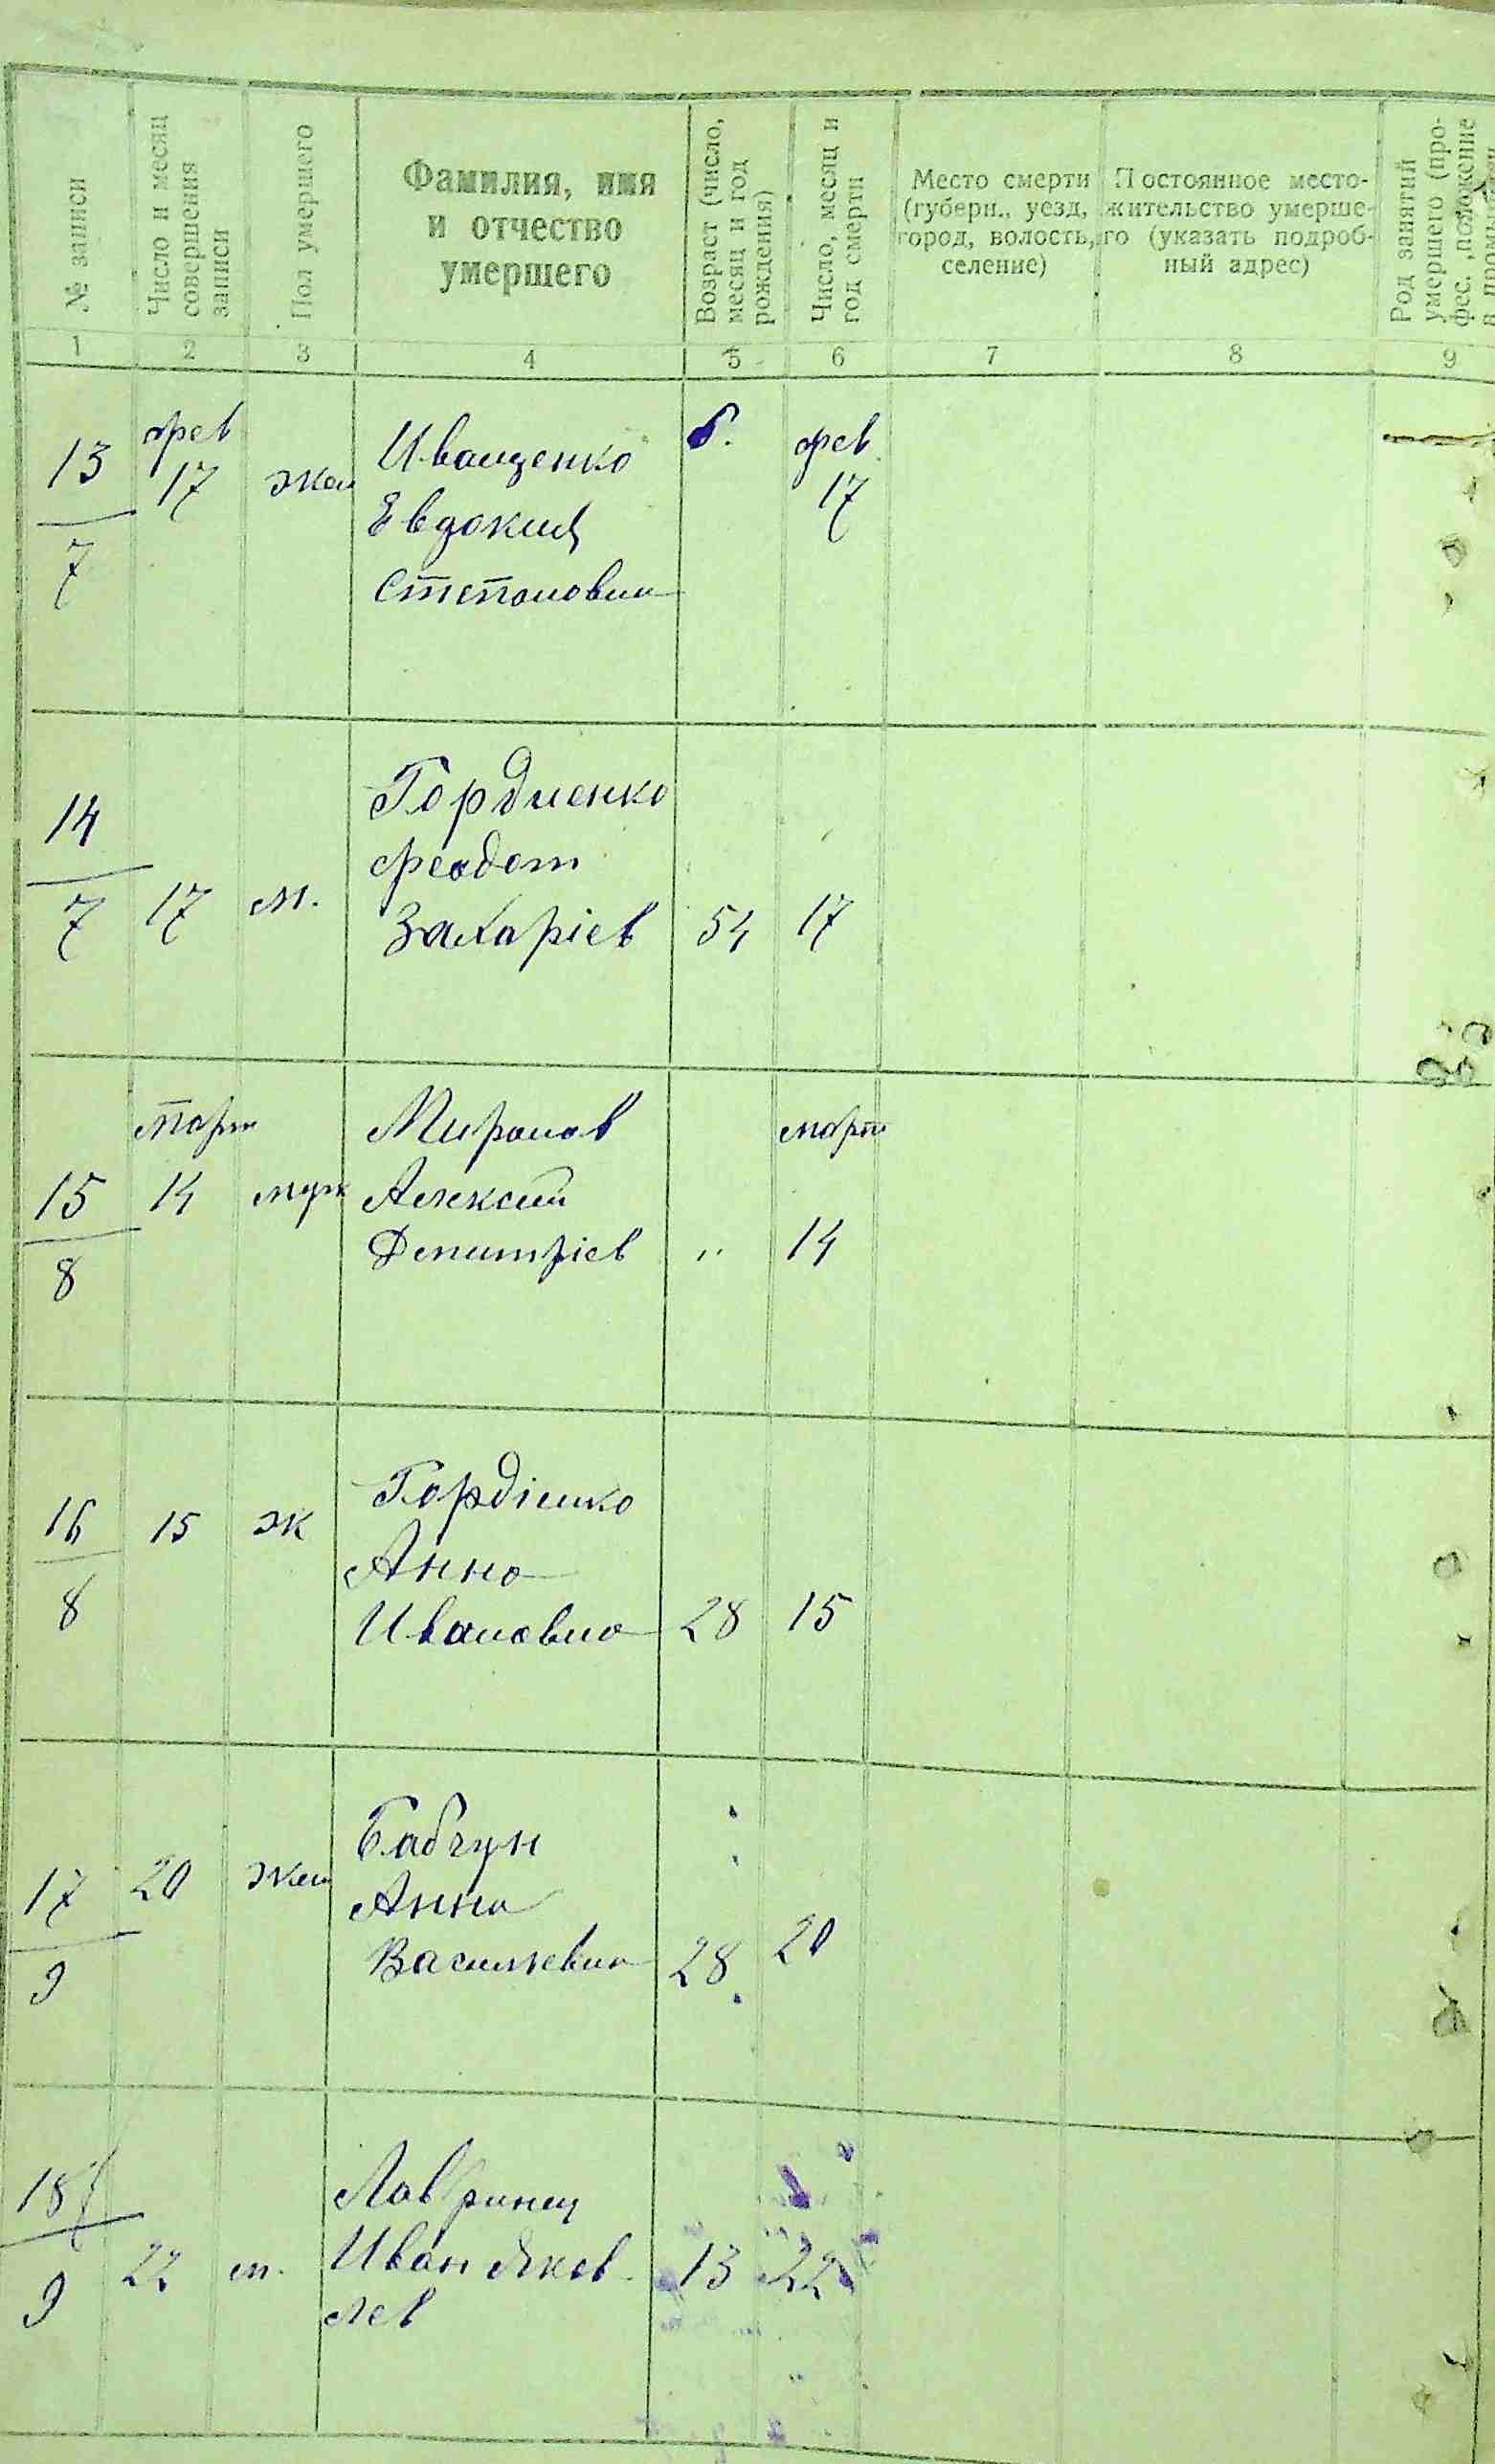 № записи
Число и месяц
совершения
записи
Пол умершего
Фамилия, имя
и отчество
умершего
Возраст (число,
месяц и год
рождения)
Число, месяц и
год смерти
Место смерти
(губерн., уезд,
город, волость,
селение)
Постоянное место-
жительство умерше-
го (указать подроб-
ный адрес)
Род занятий
умершего (про-
фес., положение
в
1 2 3 4 5 6 7 8 9
фев фев
13 17 жен Иващенко
7 17
Евдокия
Степановна
14
7 17 м. Гордиенко
Феодот
Захаріев 54 17
март март
15 14 муж Миронов
8 Алексий
Димитріев " 14
16 15 ж Гордіенко
8 Анна
Ивановна 28 15
17 20 жен Бабчун
9 Анна
Васильевна 28 20
18
9 22 м. Лавринец
Иван Яков 13 22
лев